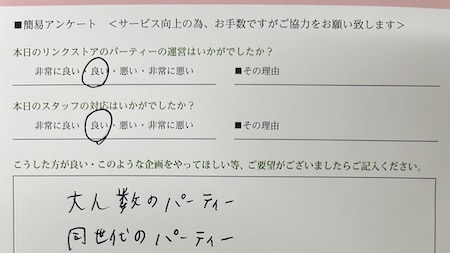 ■簡易アンケート　＜サービス向上の為、お手数ですがご協力をお願い致します＞
本日のリンクストアのパーティーの運営はいかがでしたか？
非常に良い・良い・悪い・非常に悪い　■その理由
本日のスタッフの対応はいかがでしたか？
非常に良い・良い・悪い・非常に悪い　■その理由
こうした方が良い・このような企画をやってほしい等、ご要望がございましたらご記入ください。
大人数のパーティー
同世代のパーティー